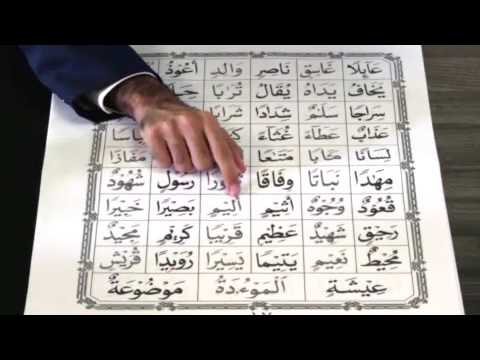 عَايِلًا غَاسِقٍ نَاصِرٍ وَالِدٍ اَعُوْذُ
يَخَافُ يَدَاهُ يُقَالُ تُرٰبًا
سِرَاجًا سَلٰمٌ شِدَادًا شَرَابًا
عَذَابٌ عَطَآءً غُثَآءً
لِسَانًا مَتَاعًا مَفَازًا
مِهٰدًا نَبَاتًا وِفَاقًا رَسُوْلٍ شُهُوْدٌ
قُعُوْدٌ وُجُوْهٌ اَثِيْمٍ اَلِيْمٍ بَصِيْرًا خَبِيْرًا
رَحِيْقٍ شَهِيْدٌ عَظِيْمٍ قَرِيْبًا كَرِيْمٍ مَجِيْدٌ
مُحِيْطٌ نَعِيْمٍ يَتِيْمًا يَسِيْرًا رُوَيْدًا قُرَيْشٍ
عِيْشَةٍ اَلْمَوْءٗدَةُ مَوْضُوْعَةٌ